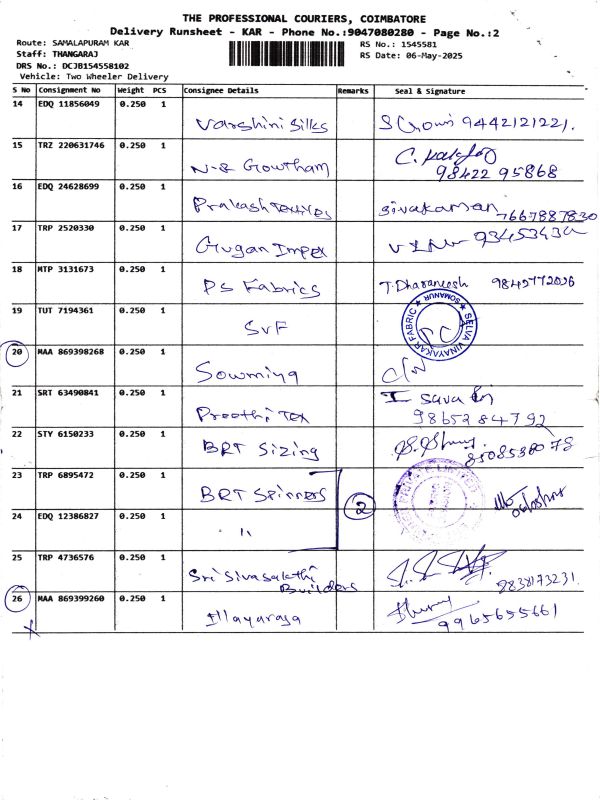 THE PROFESSIONAL COURIERS, COIMBATORE
Delivery Runsheet - KAR - Phone No.:9047080280 - Page No.:2
Route: SAMALAPURAM KAR
RS No.: 1545581
Staff: THANGARAJ
RS Date: 06-May-2025
DRS No.: DCJB154558102
Vehicle: Two Wheeler Delivery
S No Consignment No Weight PCS Consignee Details Remarks Seal & Signature
14 EDQ 11856049 0.250 1
Varshini Silks 9442121221.
15 TRZ 220631746 0.250 1
N-8 Gowtham 98422 95868
16 EDQ 24628699 0.250 1
Prakash Textiles Sivakaman 7667887830
17 TRP 2520330 0.250 1
Gugan Impex
18 MTP 3131673 0.250 1
PS Fabrics T. Dharaneesh
19 TUT 7194361 0.250 1
SVF
SELVA VINAYAKAR FABRIC
SOMANUR
20 MAA 869398268 0.250 1
Sowmiya
21 SRT 63490841 0.250 1
Preethi Tex 98652 84792
22 STY 6150233 0.250 1
BRT Sizing
23 TRP 6895472 0.250 1
BRT Spinners
2
24 EDQ 12386827 0.250 1
"
25 TRP 4736576 0.250 1
Sri Sivasakthi
Builders 9838173231.
26 MAA 869399260 0.250 1
Illayaraja 9965655661